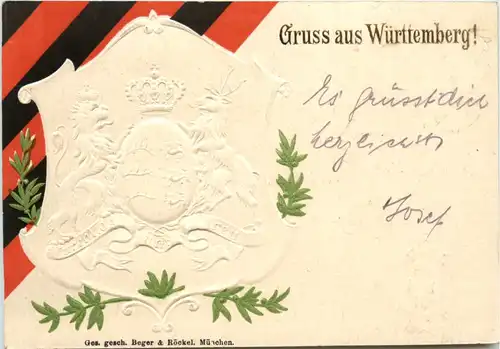 Gruss aus Württemberg!
Es grüsst dich
herzlichst
Josef
Ges. gesch. Beger & Röckel. München.